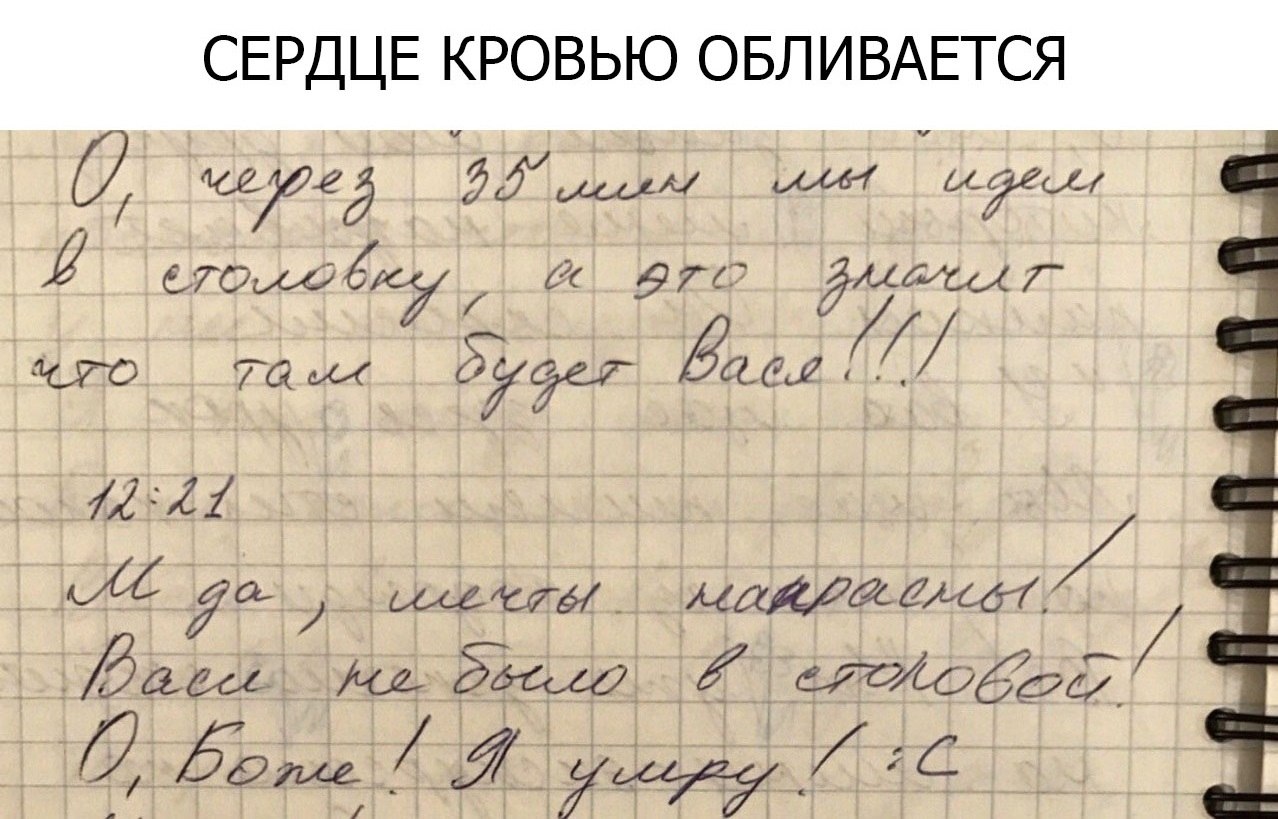 СЕРДЦЕ КРОВЬЮ ОБЛИВАЕТСЯ
О, через 35 мин мы идем
в столовку, а это значит
что там будет Вася!!!
12:21
М да, мечты напрасны!
Васи не было в столовой!
О, Боже! Я умру! :С